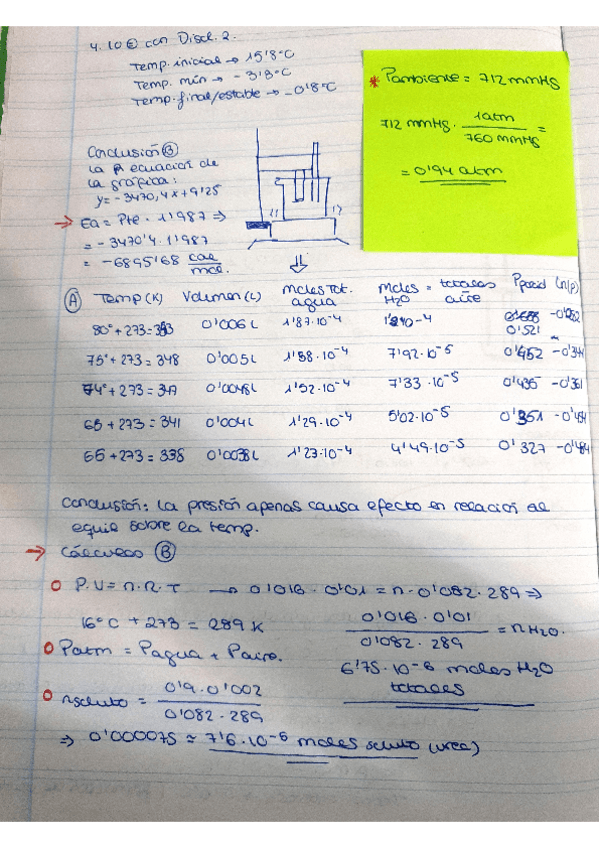 4.10 © con Disol. 2.
Temp. inicial → 15'8°C
Temp. mín → -3'8°C
Temp. final/estable → -0'8°C
* Pambiente = 712 mmHg
712 mmHg · 1atm / 760 mmHg =
= 0'94 atm
Conclusión Ⓑ
La ecuación de
la gráfica:
y = -3470,4x + 9'25
→ Ea = Pte · 1'987 ⇒
= -3470'4 · 1'987
= -6895'68 cal/mol.
Ⓐ Temp (K) Volumen (L) moles Tot. agua moles H2O = totales aire Ppresid ln(p)
80° + 273 = 353 0'006 L 1'87·10-4 0'521
75° + 273 = 348 0'005 L 1'58·10-4 7'92·10-5 0'452 -0'344
74° + 273 = 347 0'0048 L 1'52·10-4 7'33·10-5 0'435 -0'361
68 + 273 = 341 0'004 L 1'29·10-4 5'02·10-5 0'351 -0'484
65 + 273 = 338 0'0038 L 1'23·10-4 4'49·10-5 0'327 -0'484
Conclusión: La presión apenas causa efecto en relación al
equil sobre la temp.
→ Cálculos Ⓑ
P.V = n.R.T → 0'016 · 0'01 = n · 0'082 · 289 ⇒
16°C + 273 = 289 K
0'016 · 0'01 / 0'082 · 289 = nH2O.
Patm = Pagua + Paire.
6'75·10-6 moles H2O
totales
nsoluto = 0'9 · 0'002 / 0'082 · 289
⇒ 0'000075 ≈ 7'6·10-5 moles soluto (urea)